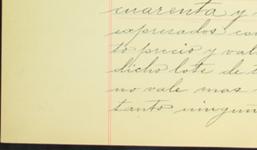 cuarenta y
expresados con
to precio y val
dicho lote de t
no vale mas
tanto ningun